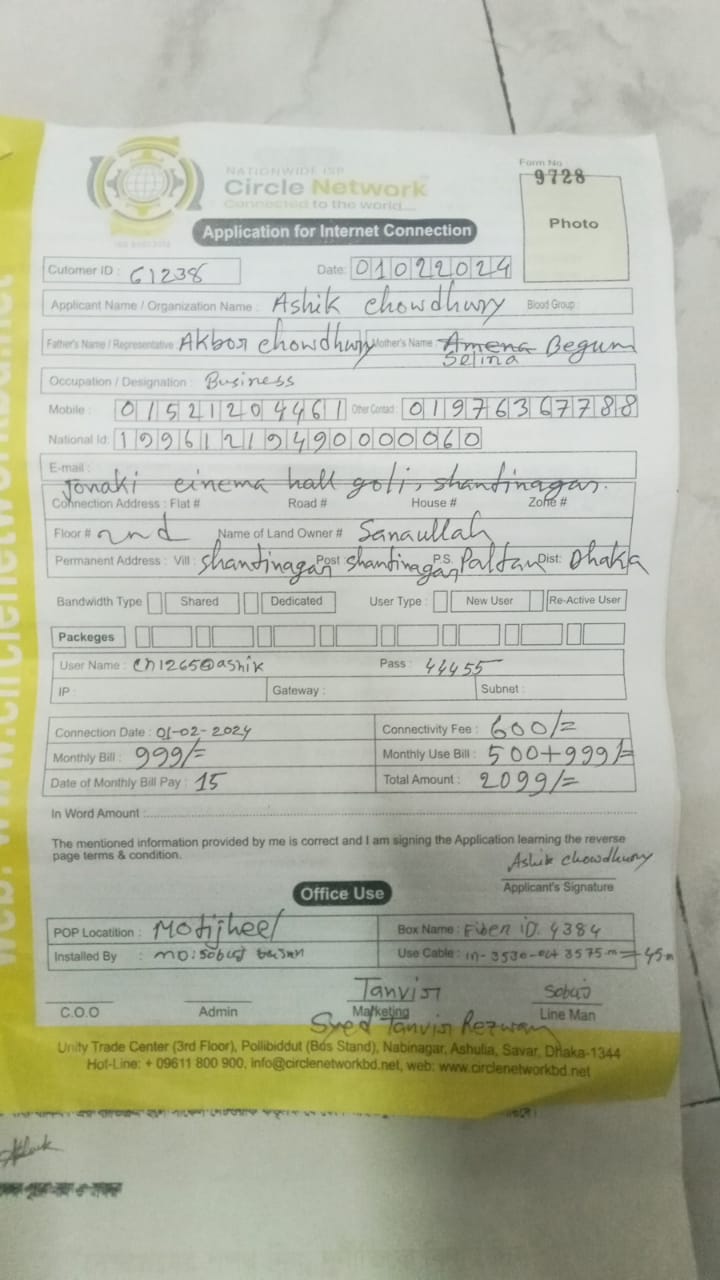 NATIONWIDE ISP
Circle Network
Connected to the world....
Form No
9728
Photo
Application for Internet Connection
Cutomer ID : 61238 Date: 01022024
Applicant Name / Organization Name : Ashik Chowdhury Blood Group :
Father's Name / Representative Akbor Chowdhury Mother's Name : Amena Begum
Selina
Occupation / Designation : Business
Mobile : 01521204461 Other Contact : 01976367788
National Id: 19961219490000060
E-mail :
Jonaki cinema hall goli, shantinagar.
Connection Address : Flat # Road # House # Zone #
Floor # 2nd Name of Land Owner # Sanaullah
Permanent Address : Vill : Shantinagar Post Shantinagar P.S. Paltan Dist: Dhaka
Bandwidth Type Shared Dedicated User Type : New User Re-Active User
Packeges
User Name : Cn1265@ashik Pass : 44455
IP : Gateway : Subnet :
Connection Date : 01-02-2024 Connectivity Fee : 600/=
Monthly Bill : 999/= Monthly Use Bill : 500+999/=
Date of Monthly Bill Pay : 15 Total Amount : 2099/=
In Word Amount :
The mentioned information provided by me is correct and I am signing the Application learning the reverse
page terms & condition.
Ashik Chowdhury
Applicant's Signature
Office Use
POP Locatition : Motijheel Box Name : Fiber iD. 4384
Installed By : MD: Sobuj Use Cable : in-3530-out 3575m = 45m
Tanvir Sobuj
C.O.O Admin Marketing Line Man
Syed Tanvir Rezwan
Unity Trade Center (3rd Floor), Pollibiddut (Bas Stand), Nabinagar, Ashulia, Savar, Dhaka-1344
Hot-Line: + 09611 800 900, info@circlenetworkbd.net, web: www.circlenetworkbd.net
web: www.circlenetworkbd.net